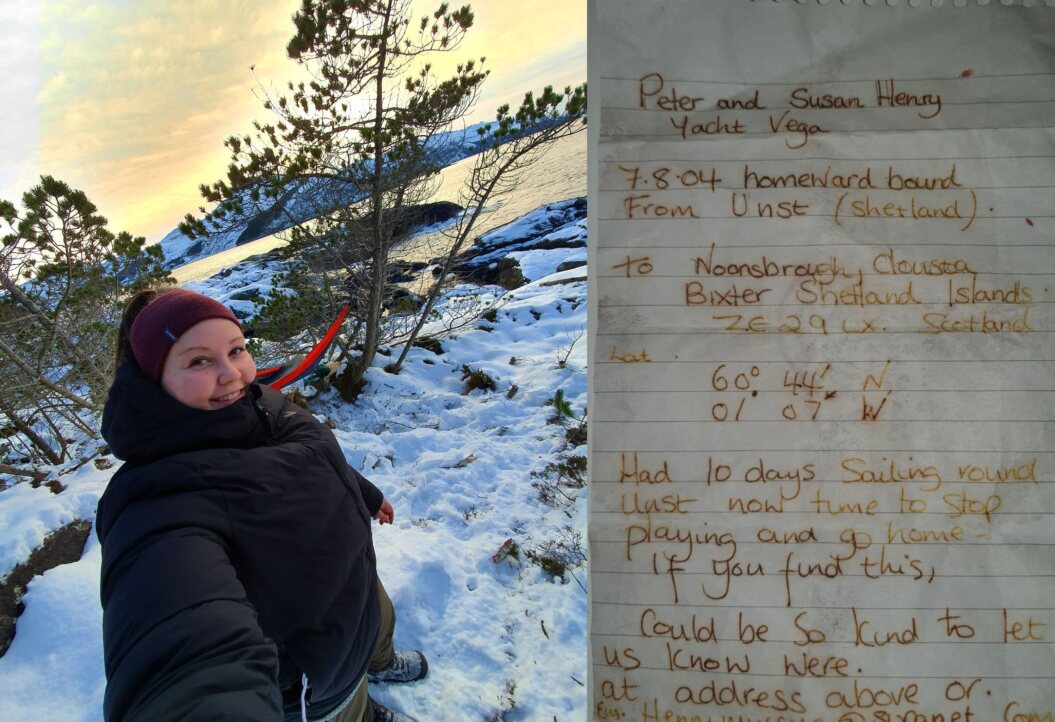 Peter and Susan Henry
Yacht Vega
7.8.04 homeward bound
From Unst (Shetland).
to Noonsbrough, Clousta
Bixter Shetland Islands.
ZE29LX. Scotland
Lat.
60° 44' N
01° 07' W
Had 10 days Sailing round
Unst now time to Stop
playing and go home -
If you find this,
Could be so kind to let
us know were.
at address above or.
Em.